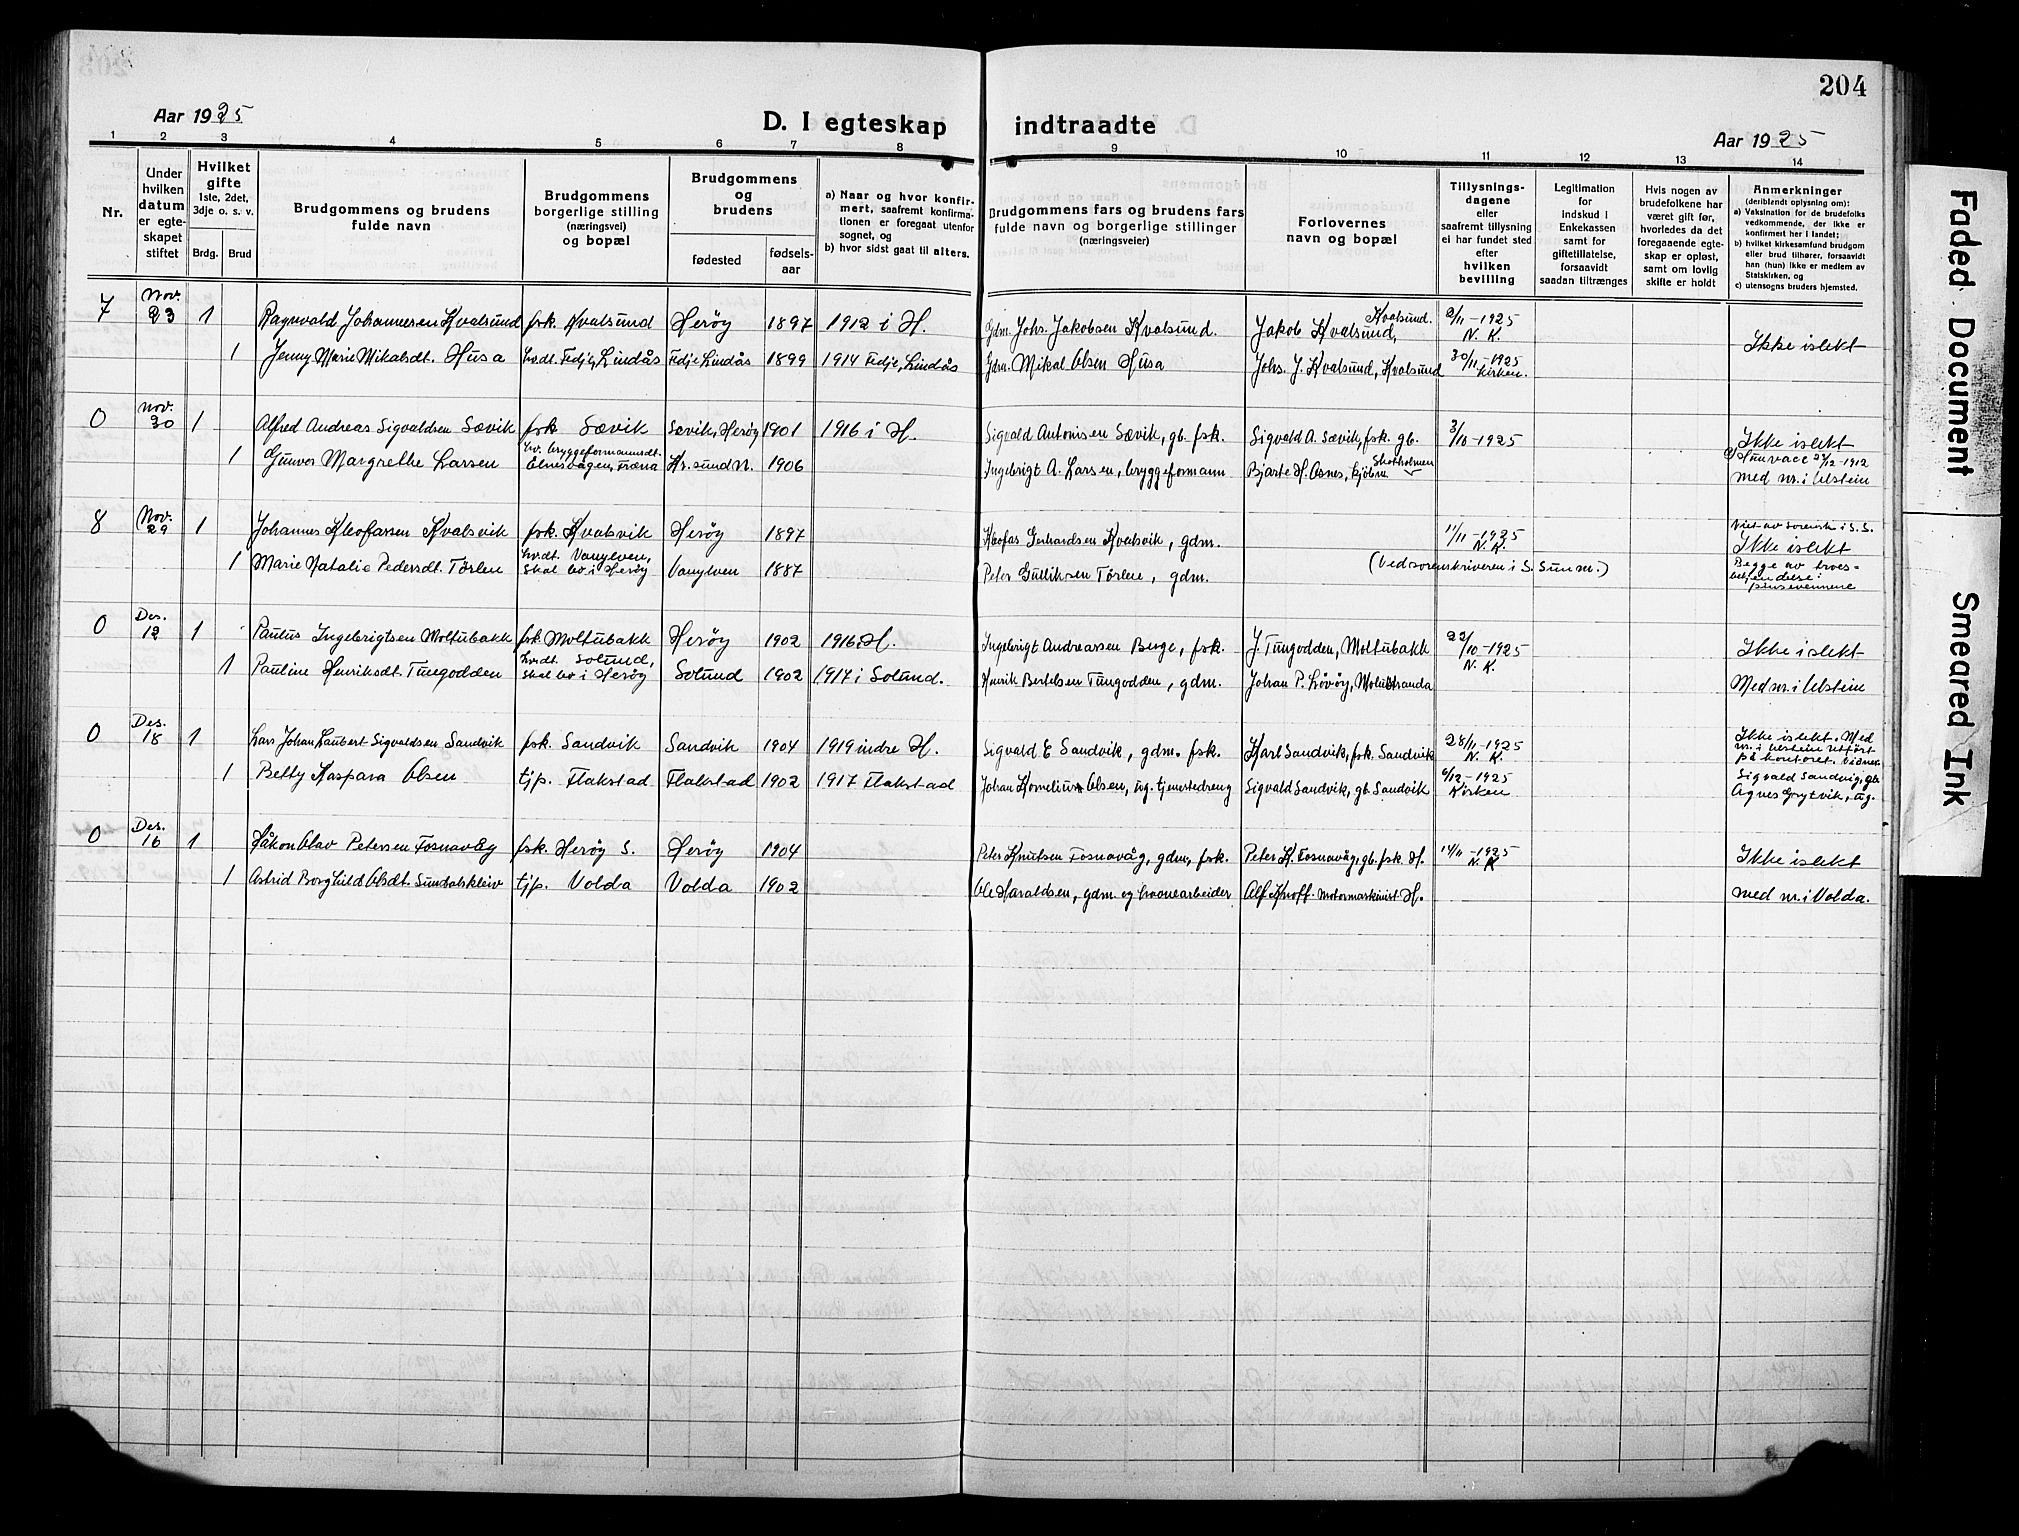 204
Aar 1925
D. I egteskap indtraadte
Aar 1925
1 2 3 4 5 6 7 8 9 10 11 12 13 14
Nr.
Under hvilken datum er egteskapet stiftet
Hvilket gifte 1ste, 2det, 3dje o. s. v.
Brdg. Brud
Brudgommens og brudens fulde navn
Brudgommens borgerlige stilling (næringsvei) og bopæl
Brudgommens og brudens
fødested
fødselsaar
a) Naar og hvor konfirmert, saafremt konfirmationen er foregaat utenfor sognet, og
b) hvor sidst gaat til alters.
Brudgommens fars og brudens fars fulde navn og borgerlige stillinger (næringsveier)
Forlovernes navn og bopæl
Tillysningsdagene eller saafremt tillysning ei har fundet sted efter hvilken bevilling
Legitimation for indskud i Enkekassen samt for giftetillatelse, forsaavidt saadan tiltrænges
Hvis nogen av brudefolkene har været gift før, hvorledes da det foregaaende egteskap er opløst, samt om lovlig skifte er holdt
Anmerkninger (deriblandt oplysning om):
a) Vaksination for de brudefolks vedkommende, der ikke er konfirmert her i landet;
b) hvilket kirkesamfund brudgom eller brud tilhører, forsaavidt han (hun) ikke er medlem av Statskirken, og
c) utensogns bruders hjemsted.
7 Nov. 23 1 Ragnvald Johannesen Kvalsund fsk. Kvalsund Herøy 1897 1912 i H. Gdm. Johs. Jakobsen Kvalsund. Jakob Kvalsund, Kvalsund. 2/11-1925 N. K. Ikke i slekt
1 Jenny Marie Mikalsdt. Husa hvdt. Fedje, Lindås Fedje Lindås 1899 1914 Fedje, Lindås Gdm. Mikal Olsen Husa Johs. J. Kvalsund, Kvalsund 30/11-1925 Kirken.
0 Nov. 30 1 Alfred Andreas Sigvaldsen Sævik fsk. Sævik Sævik, Herøy 1901 1916 i H. Sigvald Antonsen Sævik, gb. fsk. Sigvald A. Sævik, fsk. gb. 3/10-1925 Ikke i slekt
1 Gunvor Margrethe Larsen hv. bryggeformannsdt. Elnesvågen, Fræna Kr.sund N. 1906 Ingebrigt A. Larsen, bryggeformann Bjarte H. Osnes, kjøbm. Skotholmen Hun vacc 28/12-1912 med nr. i Ulstein
8 Nov. 29 1 Johannes Kleofassen Kvalsvik fsk. Kvalsvik Herøy 1897 Kleofas Gerhardsen Kvalsvik, gdm. 11/11-1925 N. K. Viet av sorensk. i S. S. Ikke i slekt
1 Marie Natalie Pedersdt. Tørlen hvdt. Vanylven, skal bo i Herøy Vanylven 1887 Peter Gulliksen Tørlen, gdm. (Ved sorenskriveren i S. Sunm.) Begge av troesbekjendelse: pinsevennene
0 Des. 12 1 Paulus Ingebrigtsen Moltubakk fsk. Moltubakk Herøy 1902 1916 H. Ingebrigt Andreassen Berge, fsk. J. Tungodden, Moltubakk 22/10-1925 N. K. Ikke i slekt
1 Pauline Henriksdt. Tungodden hvdt. Solund, skal bo i Herøy Solund 1902 1917 i Solund. Henrik Bertelsen Tungodden, gdm. Johan P. Løvøy, Moltustranda Med nr. i Ulstein
0 Des. 18 1 Lars Johan Laubert Sigvaldsen Sandvik fsk. Sandvik Sandvik 1904 1919 indre H. Sigvald E Sandvik, gdm. fsk. Karl Sandvik, fsk. Sandvik 28/11-1925 N. K. Ikke i slekt. Med nr. i Ulstein utført på kontoret. Vidner:
1 Betty Kaspara Olsen tjp. Flakstad Flakstad 1902 1917 Flakstad Johan Kornelius Olsen, ug. tjenestedreng Sigvald Sandvik, gb. Sandvik 6/12-1925 Kirken Sigvald Sandvig, gb. Agnes Grytvik, ug.
0 Des. 16 1 Håkon Olav Petersen Fosnavåg fsk. Herøy S. Herøy 1904 Peter Knutsen Fosnavåg, gdm, fsk. Peter K. Fosnavåg, gb. fsk. H. 14/11-1925 N. K Ikke i slekt
1 Astrid Borghild Olsdt. Sundalskleiv tjp. Volda Volda 1902 Ole Haraldsen, gdm. og banearbeider Alf Knoff. motormaskinist H. med nr. i Volda.
Faded Document
Smeared Ink